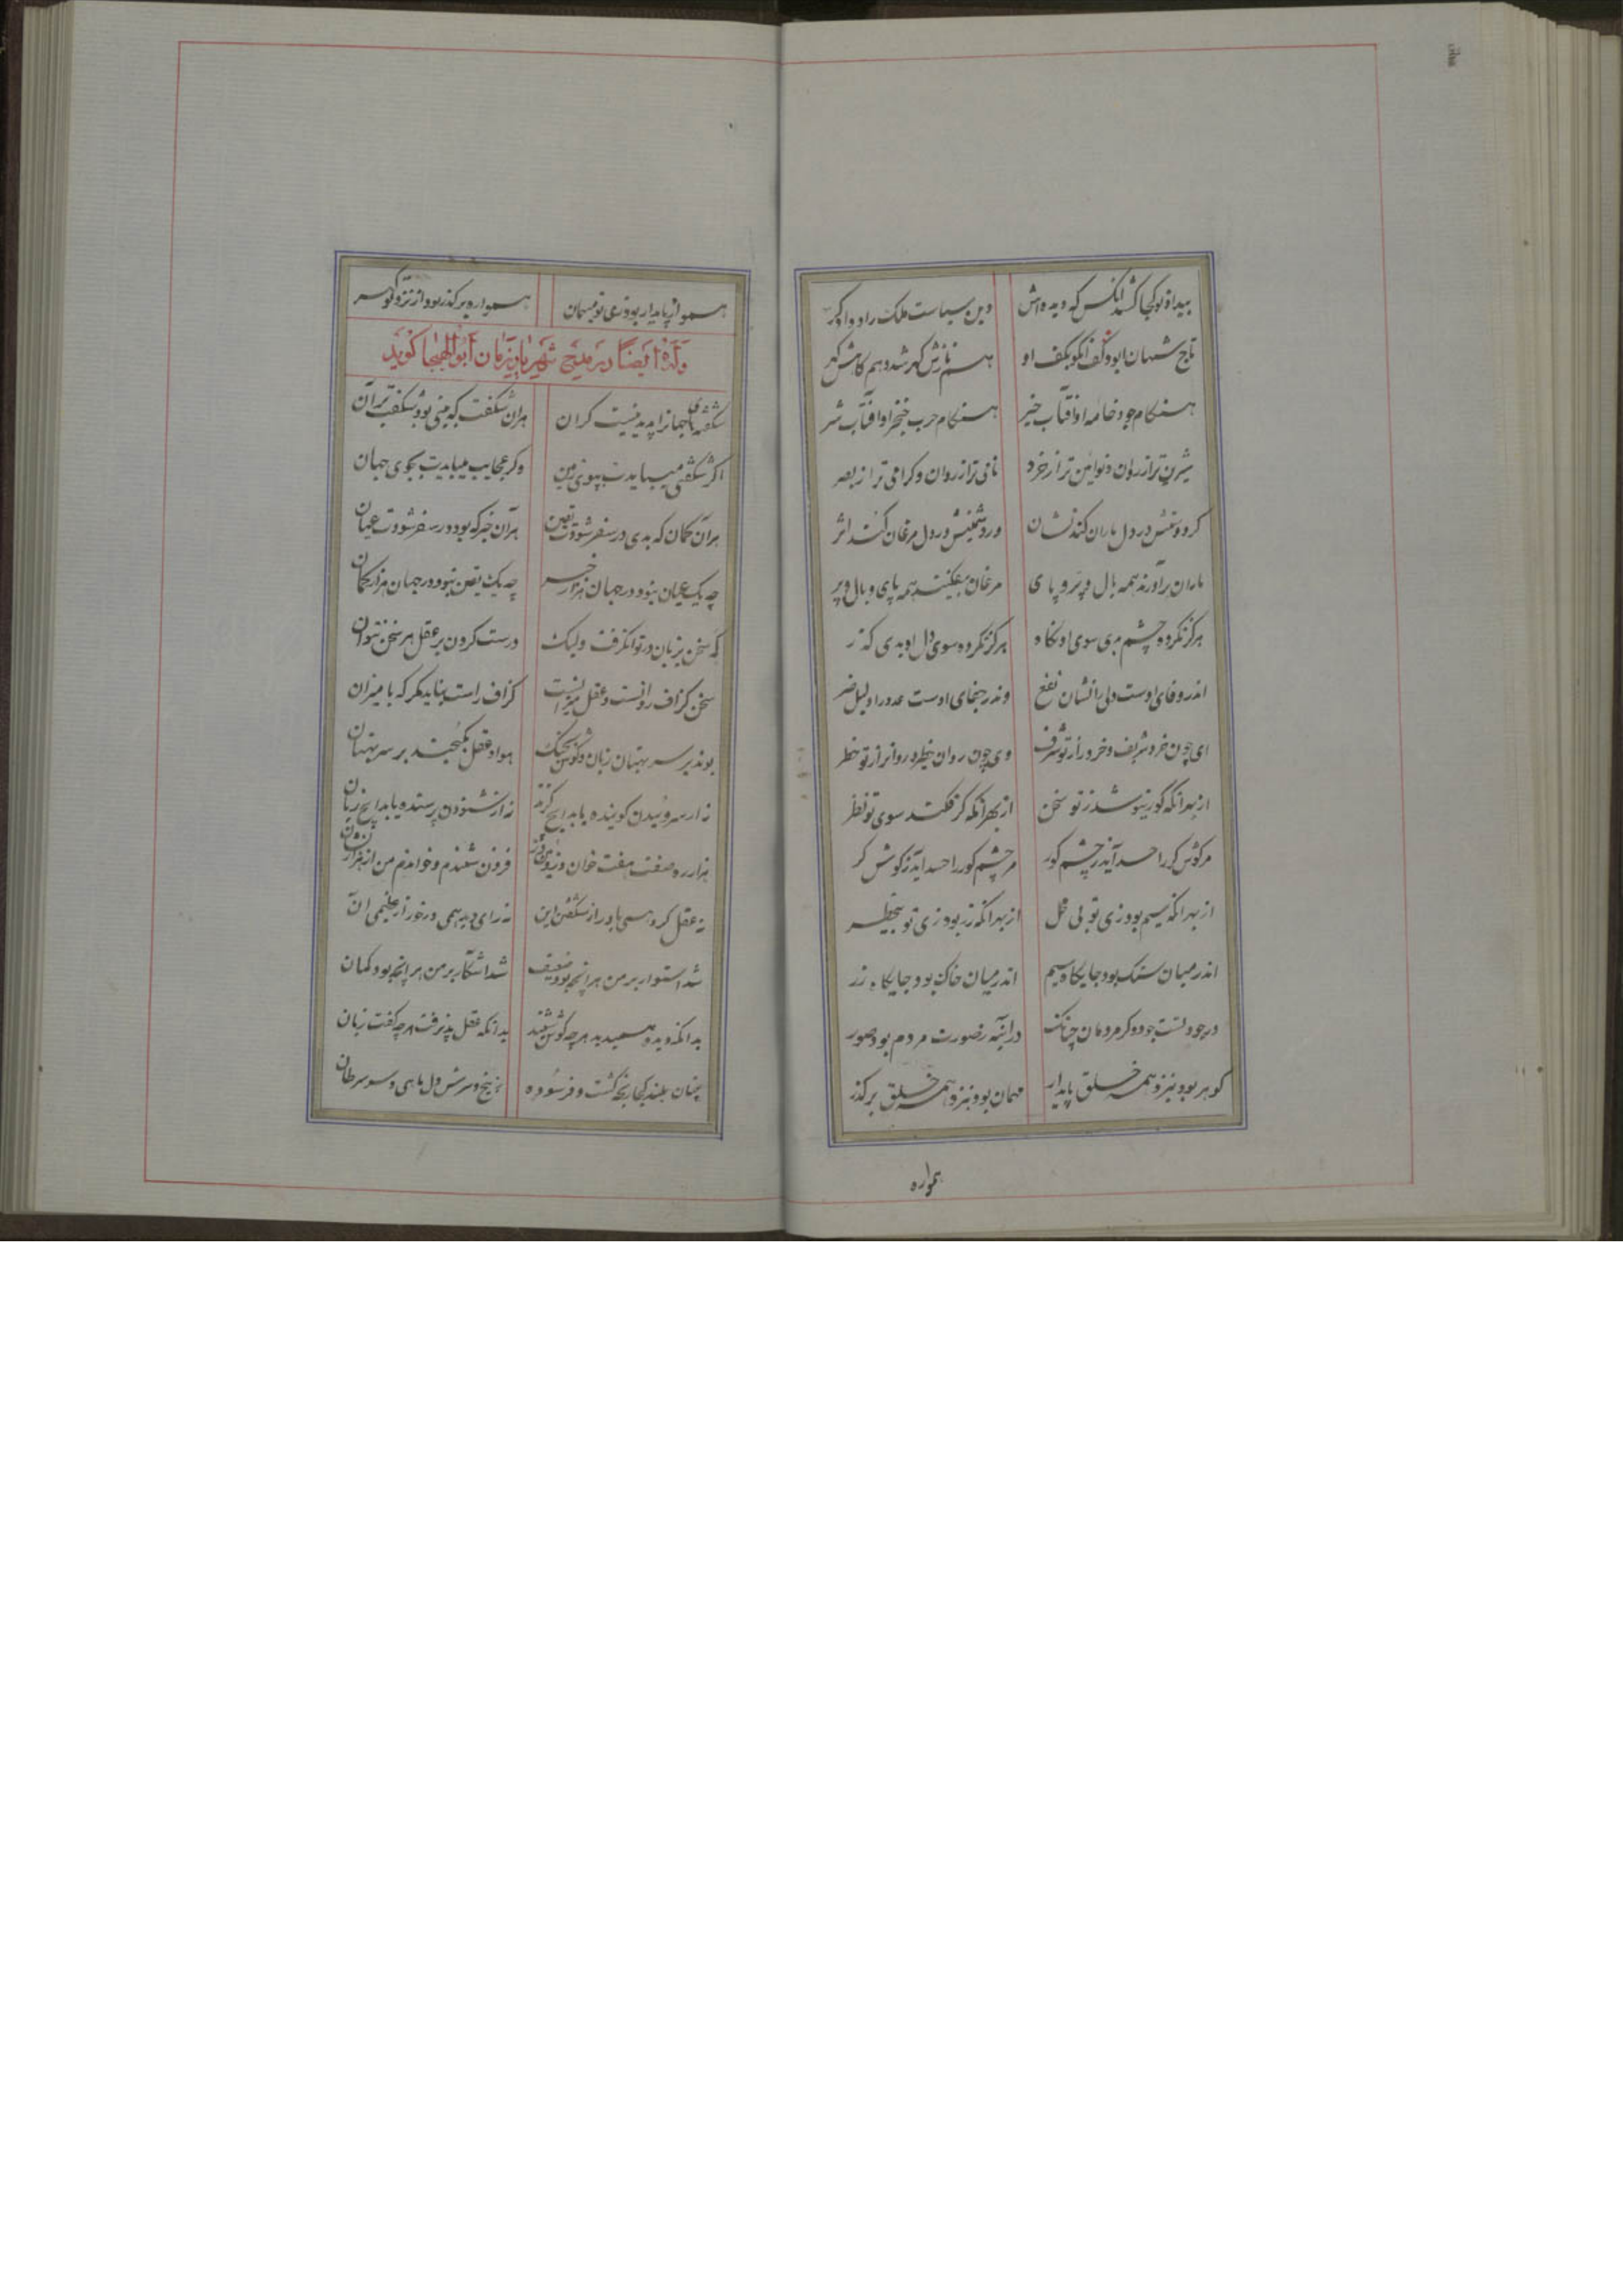 بیداد نو کجا کشد آنکس که دیده‌اش    وین سیاست ملک راد دادگر
تاج شهان ابودلف آنکو بکف او    هم نازش گهر شد و هم کاهش گهر
هنگام جود خامه او آفتاب خیر    هنگام حرب خنجر او آفتاب شر
شیرین تر از روان و نوآئین تر از خرد    نامی تر از روان و گرامی تر از بصر
گر دوستیش در دل ماران کند نشان    ور دشمنیش در دل مرغان کند اثر
ماران برآورند همه بال و پر و پای    مرغان بیفکنند همه پای و بال و پر
هرگز نکرده چشم بدی سوی او نگاه    هرگز نکرده سوی دل او بدی گذر
اندر وفای اوست ولی را نشان نفع    وندر جفای اوست عدو را دلیل ضر
ای چون خرد شریف و خرد را ز تو شرف    وی چون روان خطیر و روانرا ز تو خطر
از بهر آنکه گور نیوشد ز تو سخن    از بهر آنکه کر فکند سوی تو نظر
مر گوش کر را حسد آید ز چشم کور    مر چشم کور را حسد آید ز گوش کر
از بهر آنکه سیم بود زی تو بی محل    از بهر آنکه زر بود زی تو بیخطر
اندر میان سنگ بود جایگاه سیم    اندر میان خاک بود جایگاه زر
در جود تست جود و کرم مردمان چنانک    در آینه ز صورت مردم بود صور
گوهر بود بنزد همه خلق پایدار    مهمان بود بنزد همه خلق بر گذر
همواره
همواره پایدار بود زی تو میهمان    همواره بر گذر بود از نزد تو گهر
وله ایضا در مدح شهریار زمان ابوالهیجا گوید
شگفتهای جهانرا پدید نیست کران    هر آن شگفت که بینی بود شگفت‌تر آن
اگر شگفتی میبایدت بپوی زمین    وگر عجایب میبایدت بجوی جهان
هر آن گمان که بدی در سفر شودت یقین    هر آن خبر که بود در سفر شودت عیان
چه یک عیان نبود در جهان هزار خبر    چه یک یقین نبود در جهان هزار گمان
که سخن بزبان در توان گرفت ولیک    درست کردن بر عقل هر سخن نتوان
سخن گزاف روانست و عقل میزانست    گزاف راست نیاید مگر که با میزان
بوند بر سر بهتان زبان و گوش بجنگ    هوا و عقل نگنجند بر سر بهتان
نه از سروئیدن گوینده یابد ایچ گزند    نه از شنودن پرسنده یابد ایچ زیان
هزار ره صفت هفت خوان و روئین دژ    فزون شنیدم و خواندم من از هزار افسان
نه عقل کرد همی باور از شگفتن این    نه رای دید همی در خور از عظیمی آن
شد استوار بر من هر آنچه بود ضعیف    شد آشکار بر من هر آنچه بود گمان
بدانکه دیده بدید هر چه گوش شنید    بدانکه عقل پذیرفت هر چه گفت زبان
چنان بلند کجا    ز بیخ و سرش دل ماهی و سر سرطان